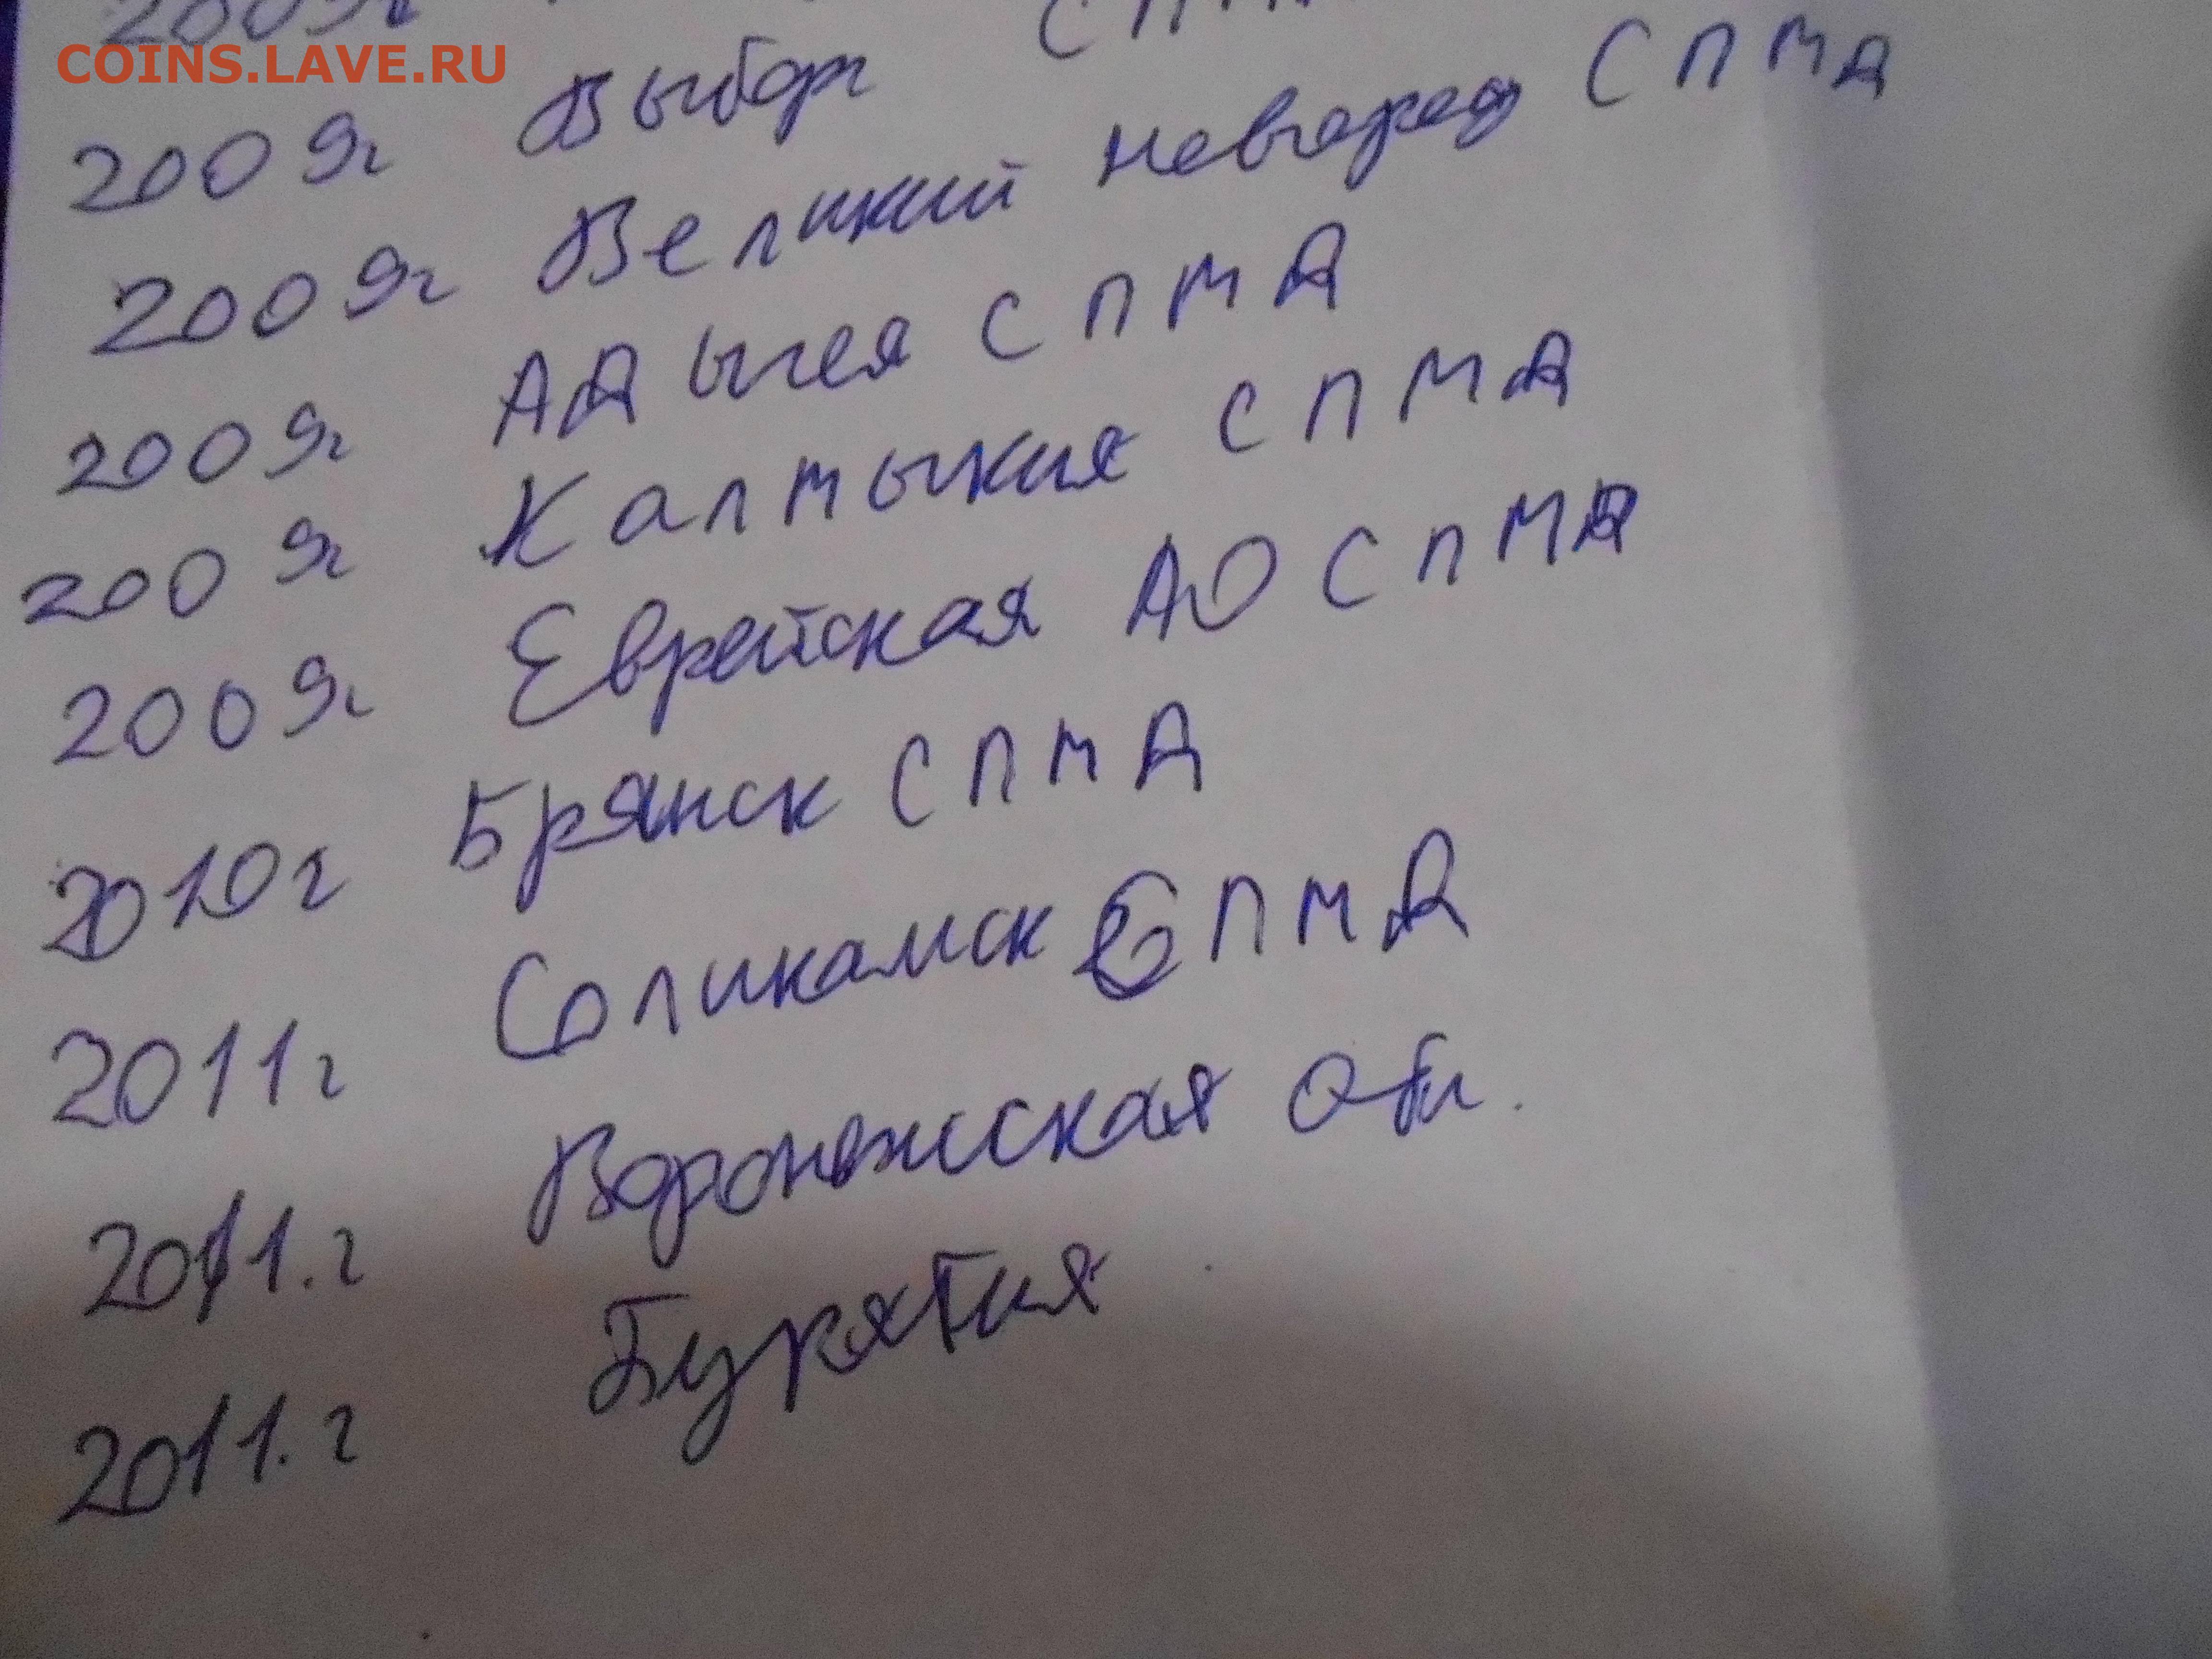 2009г
COINS.LAVE.RU
2009г Выборг СПМ
2009г Великий Новгород СПМД
2009г Адыгея СПМД
2009г Калмыкия СПМД
2009г Еврейская АО СПМД
2010г Брянск СПМД
2011г Соликамск СПМД
2011.г Воронежская обл.
2011.г Бурятия